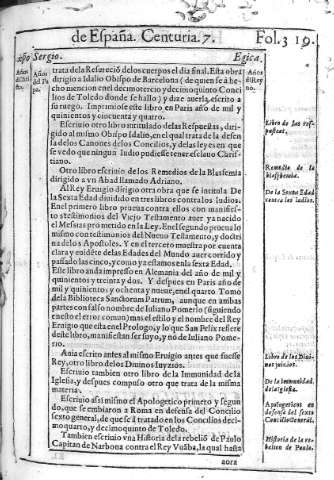 de España. Centuria. 7. Fol. 319.
Sergio. Egica.
Años del Pa
Años
trata dela Resureciõ delos cuerpos el dia final. Esta obra
dirigio a Idalio Obispo de Barcelona (de quien se a he
cho mencion enel decimotercio y decimoquinto Conci
lios de Toledo donde se hallo) y dize auerla, escrito a
su ruego. Imprimiose este libro en Paris año de mil y
quinientos y cincuenta y quarto.
Escriuio otro libro intitulado delas Respuestas, diri
gido al mismo Obispo Idalio, en el qual trata de la defen
sa delos Canones delos Concilios, y delas leyes en que
se vedo que ningun Iudio pudiese tener esclauo Chris-
tiano.
Otro libro escriuio delos Remedios de la Blasfemia
dirigido a vn Abad llamado Adriano.
Al Rey Eruigio dirigio otra obra que se intitula De
la Sexta Edad diuidido en tres libros contra los Iudios.
En el primero libro prueua contra ellos con manifies-
tos testimonios del Viejo Testamento auer ya nacido
el Mesias prometido en la Ley. En el segundo prueua lo
mismo con testimonios del Nueuo Testamento, y doctri
na delos Apostoles. Y en el tercero muestra por cuenta
clara y euidẽte delas Edades del Mundo auer corrido y
pasado las cinco, y como ya estamos en la sexta Edad.
Este libro anda impreso en Alemania del año de mil y
quinientos y treinta y dos. Y despues en Paris año de
mil y quinientos y ochenta y nueue, en el quarto Tomo
dela Bibliotheca Sanctorum Patrum, aunque en ambas
partes con falso nombre de Iuliano Pomerio (siguiendo
en esto el error comun) mas el estilo y el nombre del Rey
Eruigio que esta en el Prologo, y lo que San Felix refiere
deste libro, manifiestan ser suyo, y no de Iuliano Pome-
rio.
Auia escrito antes al mismo Eruigio antes que fuesse
Rey, otro libro delos Diuinos Iuyzios.
Escriuio tambien otro libro de la Inmunidad de la
Iglesia, y despues compuso otro que trata de la misma
materia.
Escriuio asi mismo el Apologetico primero y segun
do, que se embiaron a Roma en defensa del Concilio
sexto general, de que se a tratado en los Concilios deci
mo quarto, y decimoquinto de Toledo.
Tambien escriuio vna Historia dela rebeliõ de Paulo
Capitan de Narbona contra el Rey Vuãba, la qual hasta
aora
Años
Libro de las Res-
puestas.
Remedio de la
blasphemia.
De la Sexta Edad
contra los Iudios.
Libro de los Diui-
nos juizios.
De la Inmunidad
de la Iglesia.
Apologeticos en
defensa del sexto
Concilio General.
Historia de la re-
belion de Paulo.